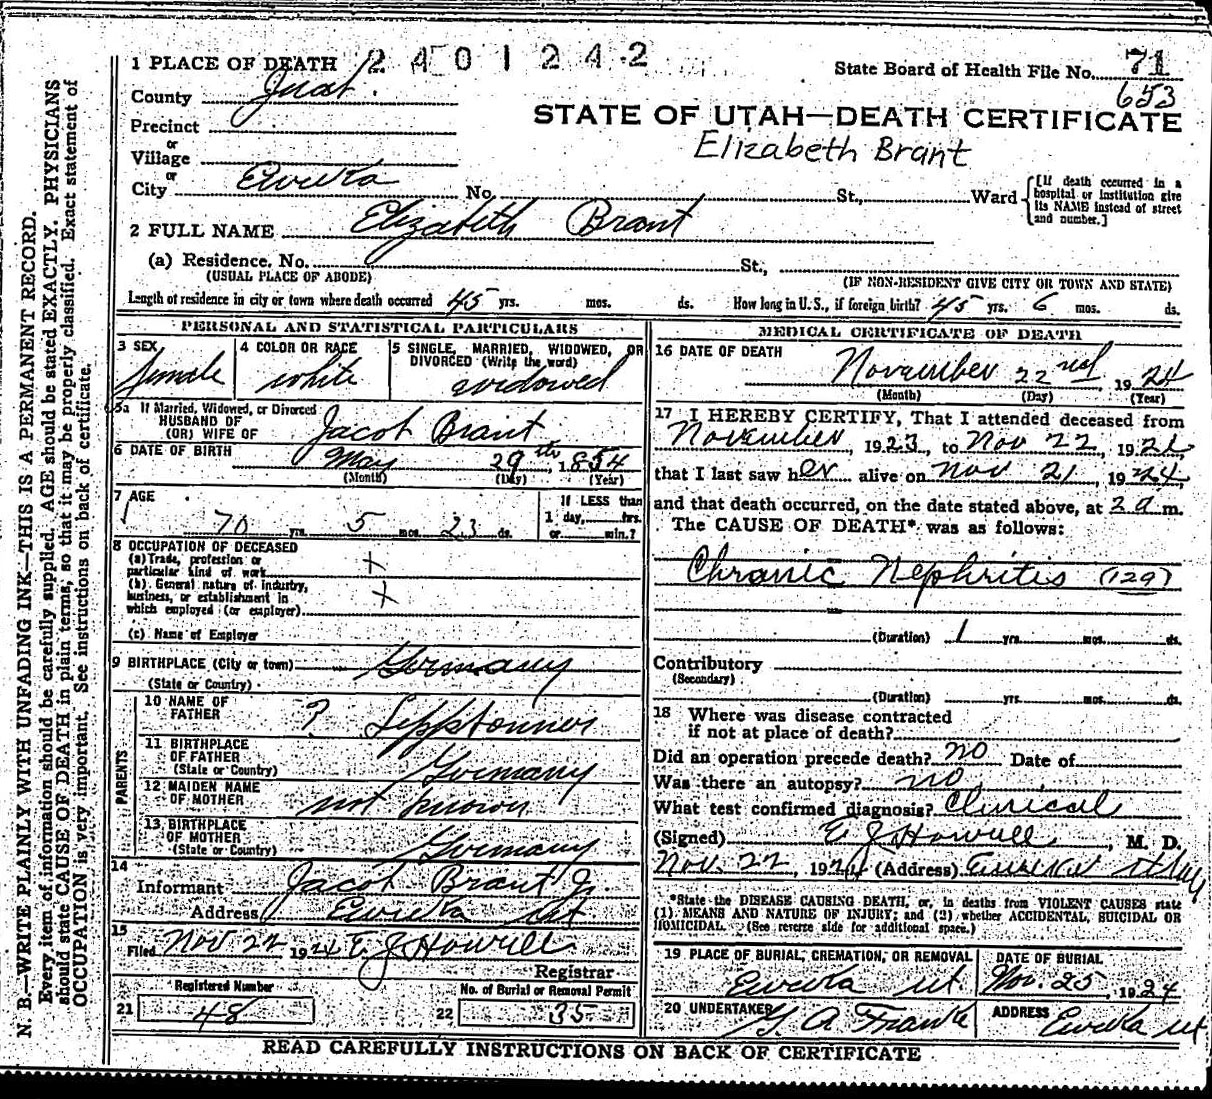 1 PLACE OF DEATH 2401242
State Board of Health File No. 71
653
County Juab.
STATE OF UTAH—DEATH CERTIFICATE
Precinct
or
Elizabeth Brant
Village
or
City Eureka No. St., Ward
[If death occurred in a
hospital or institution give
its NAME instead of street
and number.]
2 FULL NAME Elizabeth Brant
(a) Residence. No. St.,
(USUAL PLACE OF ABODE) (IF NON-RESIDENT GIVE CITY OR TOWN AND STATE)
Length of residence in city or town where death occurred 45 yrs. mos. ds. How long in U.S., if foreign birth? 45 yrs. 6 mos. ds.
PERSONAL AND STATISTICAL PARTICULARS
3 SEX female
4 COLOR OR RACE white
5 SINGLE, MARRIED, WIDOWED, OR
DIVORCED (Write the word)
widowed
5a If Married, Widowed, or Divorced
HUSBAND OF
(OR) WIFE OF Jacob Brant
6 DATE OF BIRTH May 29th, 1854
(Month) (Day) (Year)
7 AGE
70 yrs. 5 mos. 23 ds.
If LESS than
1 day, hrs.
or min.?
8 OCCUPATION OF DECEASED
(a) Trade, profession or
particular kind of work x
(b) General nature of industry,
business, or establishment in
which employed (or employer) x
(c) Name of Employer
9 BIRTHPLACE (City or town) Germany
(State or Country)
PARENTS
10 NAME OF
FATHER ? Leppstonner
11 BIRTHPLACE
OF FATHER
(State or Country) Germany
12 MAIDEN NAME
OF MOTHER not known
13 BIRTHPLACE
OF MOTHER
(State or Country) Germany
14
Informant Jacob Brant Jr.
Address Eureka Ut
15
Filed Nov 22 1924 E. J. Howell
Registrar
Registered Number
21 48
No. of Burial or Removal Permit
22 35
MEDICAL CERTIFICATE OF DEATH
16 DATE OF DEATH
November 22nd, 1924
(Month) (Day) (Year)
17 I HEREBY CERTIFY, That I attended deceased from
November, 1923, to Nov 22, 1924
that I last saw her alive on Nov 21, 1924,
and that death occurred, on the date stated above, at 2 a m.
The CAUSE OF DEATH* was as follows:
Chronic Nephritis (129)
(Duration) 1 yrs. mos. ds.
Contributory
(Secondary)
(Duration) yrs. mos. ds.
18 Where was disease contracted
if not at place of death?
Did an operation precede death? no Date of
Was there an autopsy? no
What test confirmed diagnosis? Clinical
(Signed) E J Howell, M. D.
Nov. 22, 1924 (Address) Eureka Utah
*State the DISEASE CAUSING DEATH, or, in deaths from VIOLENT CAUSES state
(1) MEANS AND NATURE OF INJURY; and (2) whether ACCIDENTAL, SUICIDAL OR
HOMICIDAL. (See reverse side for additional space.)
19 PLACE OF BURIAL, CREMATION, OR REMOVAL
Eureka Ut
DATE OF BURIAL
Nov. 25, 1924
20 UNDERTAKER
G. A. Franke
ADDRESS
Eureka Ut
READ CAREFULLY INSTRUCTIONS ON BACK OF CERTIFICATE
N. B.—WRITE PLAINLY WITH UNFADING INK—THIS IS A PERMANENT RECORD.
Every item of information should be carefully supplied. AGE should be stated EXACTLY. PHYSICIANS
should state CAUSE OF DEATH in plain terms, so that it may be properly classified. Exact statement of
OCCUPATION is very important. See instructions on back of certificate.